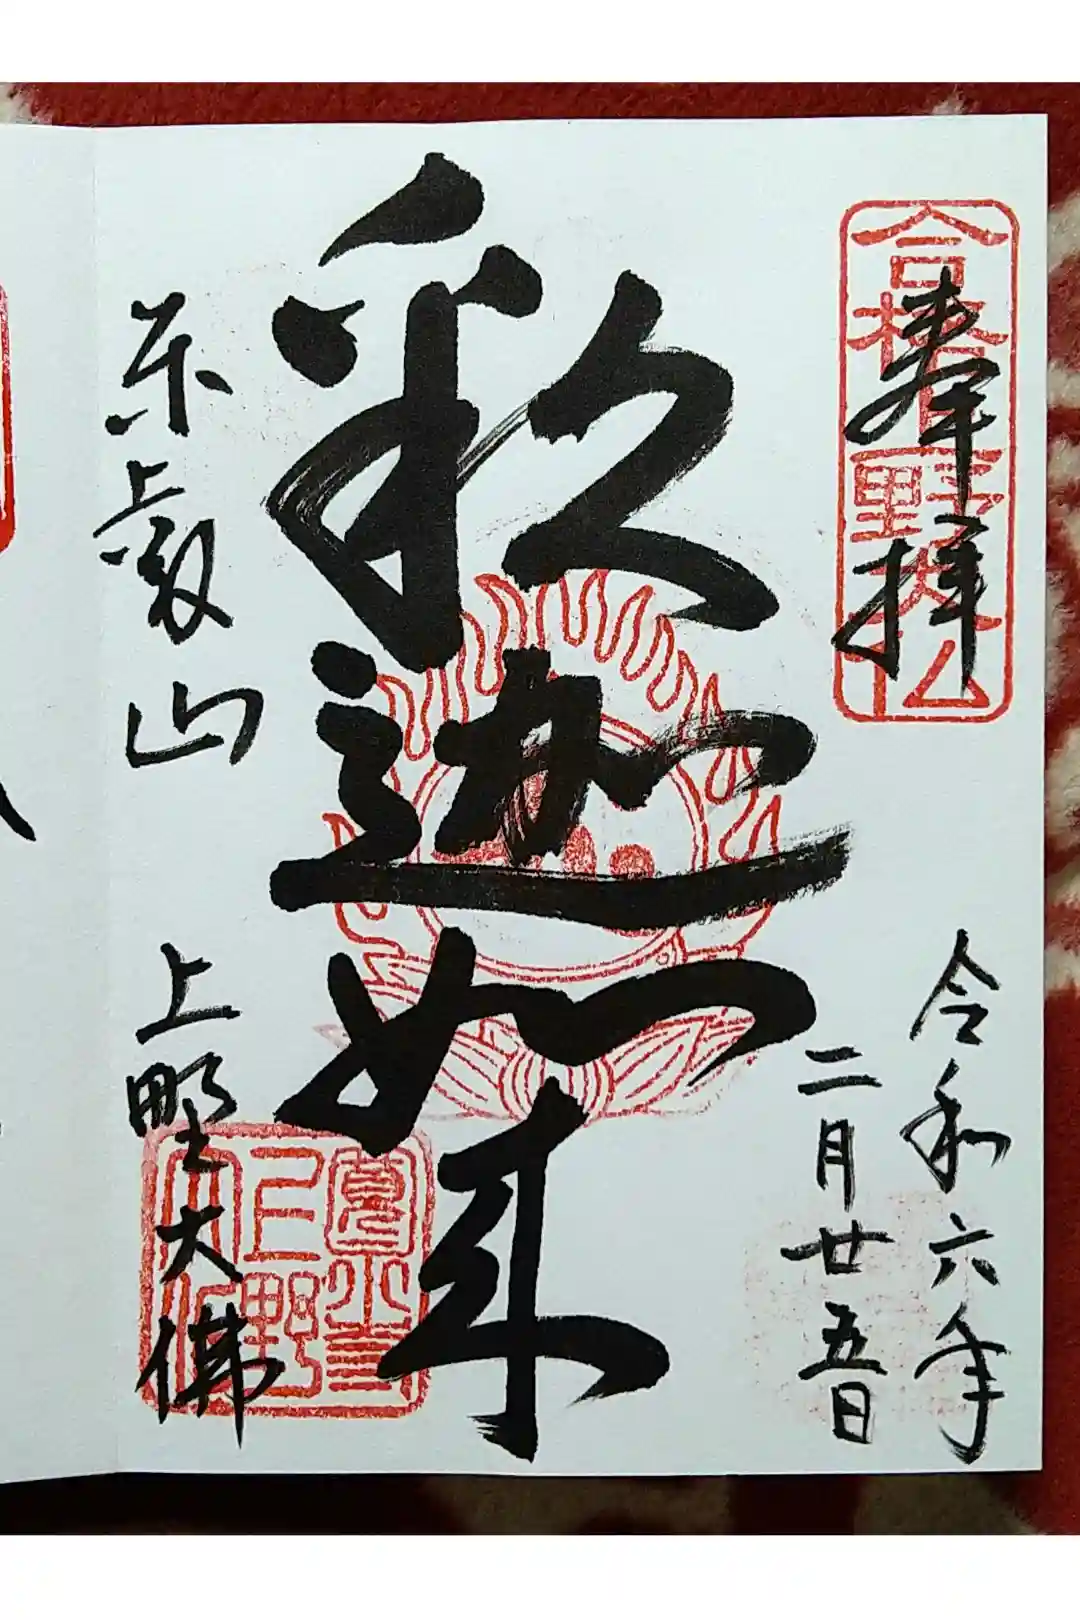 合格 上野大仏
奉拝
令和六年
二月廿五日
釈迦如来
東叡山
上野大佛